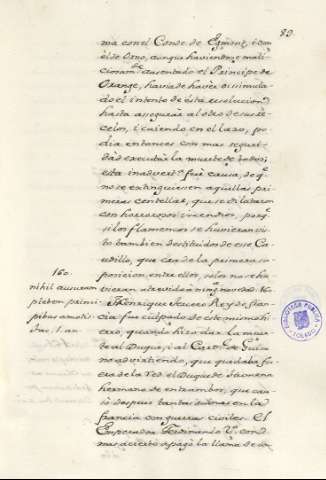 89.
ma con el Conde de Egmont, i con
el de Orno, aunque haviendose mali
ausentado el Principe de
Orange, havia de haver dissimula
do el intento de ésta resolucion
hasta assegurar al otro de sus re
celos, i cuiendo en el lazo, po
dia entonces con mas seguri
dad executar la muerte de todos;
esta inadvert.ª fue causa, de q.
no se extinguiesen aquellas pri
meras centellas, que se dilataron
con horrorosos incendios, porq.
si los flamencos se huvieran vis
to tambien destituidos de ese Ca
udillo, que era de la primera su
posicion entre ellos, solos no se hu
vieran atrevido à
160.
nihil ausuram
plebem princi
pibus amotis
Tac. 1. an.
Henrique tercero Rey de fran
cia fue culpado de este mismo hi
erro, quando hizo dar la muer
te al Duque, i al Card.l de Guisa
no advirtiendo, que quedaba fu
era de la red el Duque de
hermano de entrambos, que cau
so despues tantas en la
francia con guerras civiles. El
Emperador Ferdinando 2.º con
mas acierto apagò la llama de
BIBLIOTECA PUBLICA
TOLEDO